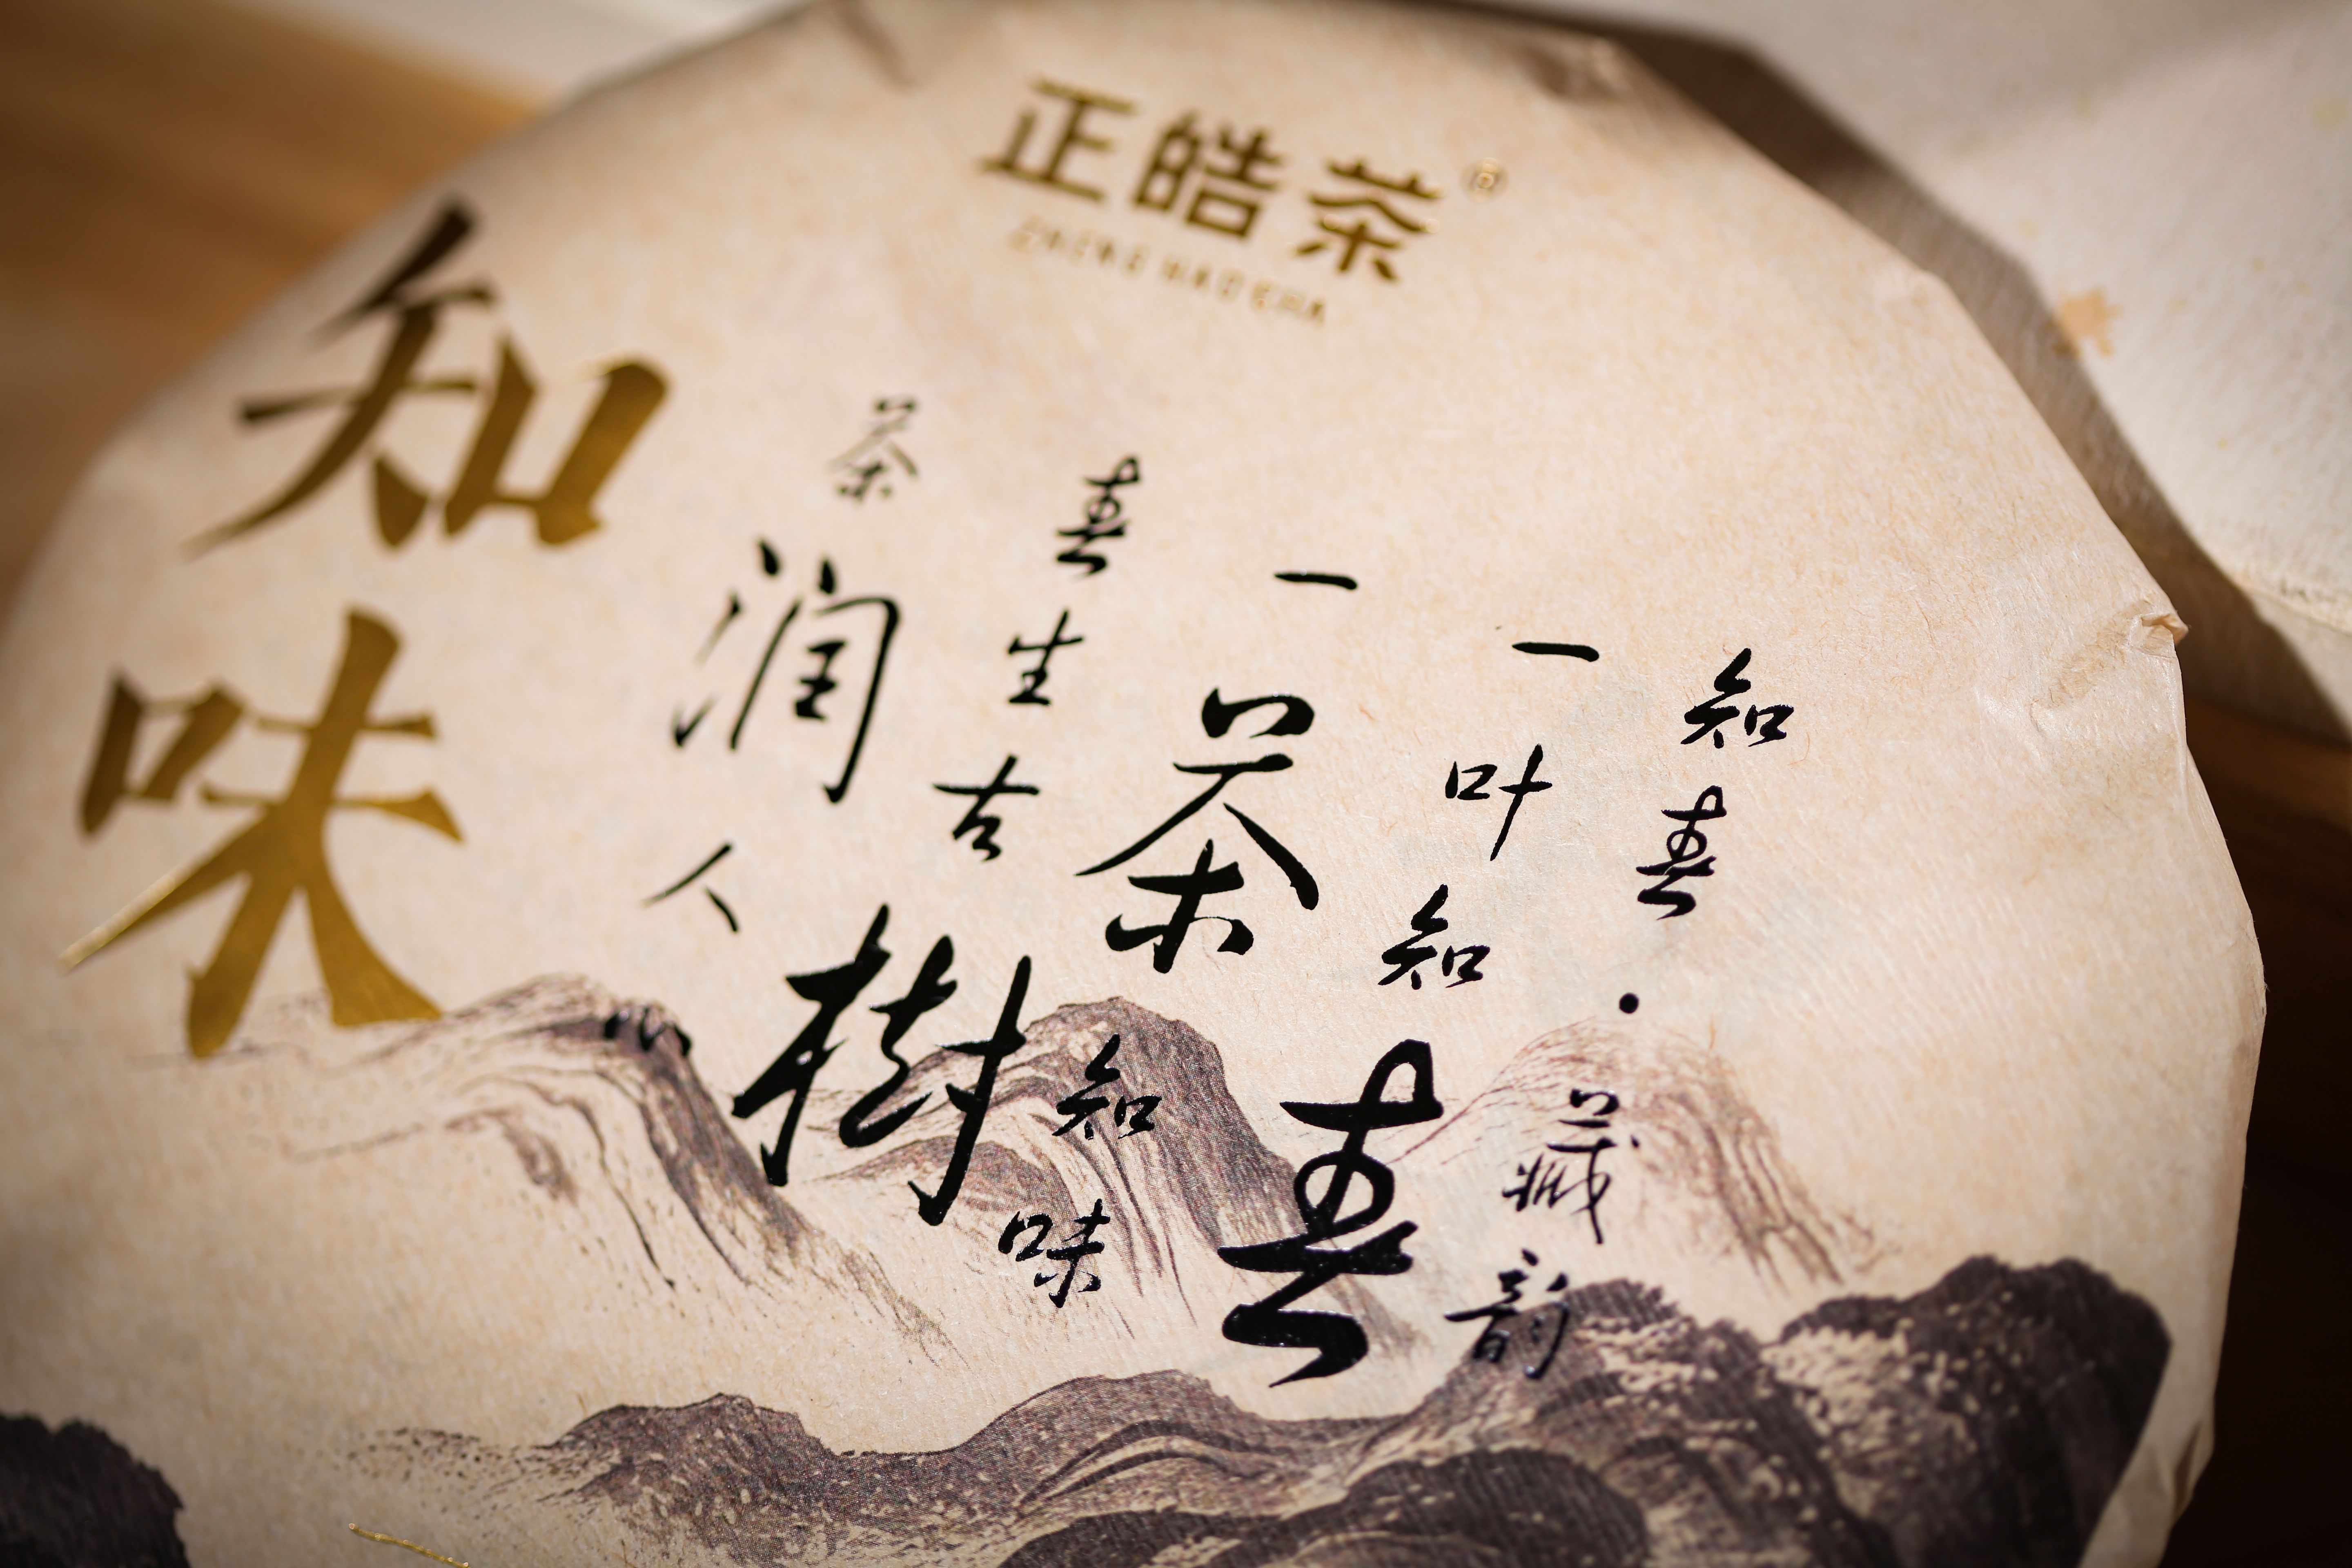 正皓茶®
ZHENG HAO CHA
知味
知春·藏韵
一叶知春
一茶知味
春生古樹
茶润人心